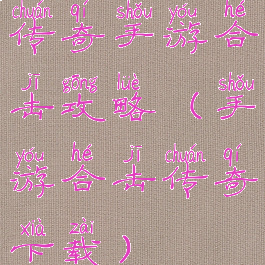 chuán qí shǒu yóu hé
传奇手游合
jī gōng lüè shǒu
击攻略（手
yóu hé jī chuán qí
游合击传奇
xià zài
下载）